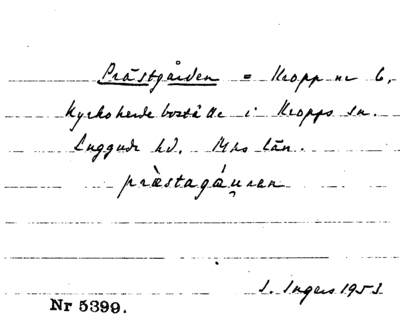 Prästgården = Kropp nr 6.
Kyrkoherdeboställe i Kropps sn.
Luggude hd. Mhs län.
prästagáu̯ren
I. Ingers 1953
Nr 5399.